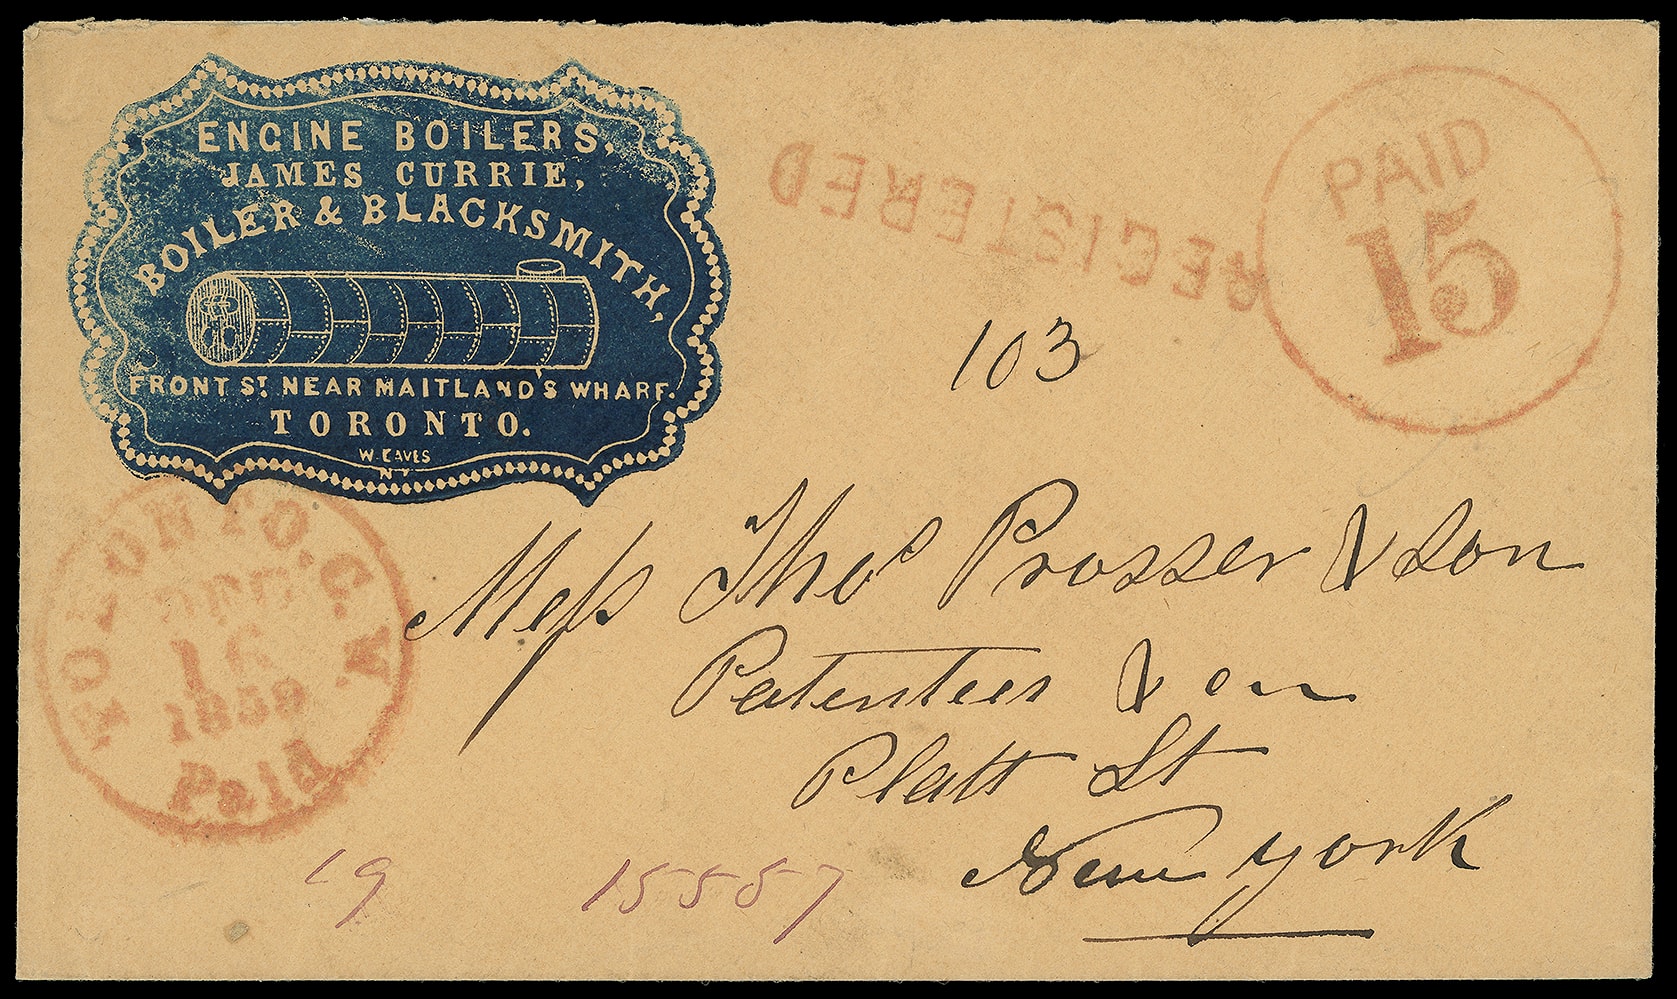 ENGINE BOILERS,
JAMES CURRIE,
BOILER & BLACKSMITH,
FRONT ST. NEAR MAITLAND'S WHARF.
TORONTO.
W. EAVES
N Y
REGISTERED
PAID
15
103
TORONTO. C.W.
12
1856
PAID
Mess Thos Prosser & Son
Patentees &
Platt St
New York
19
15557